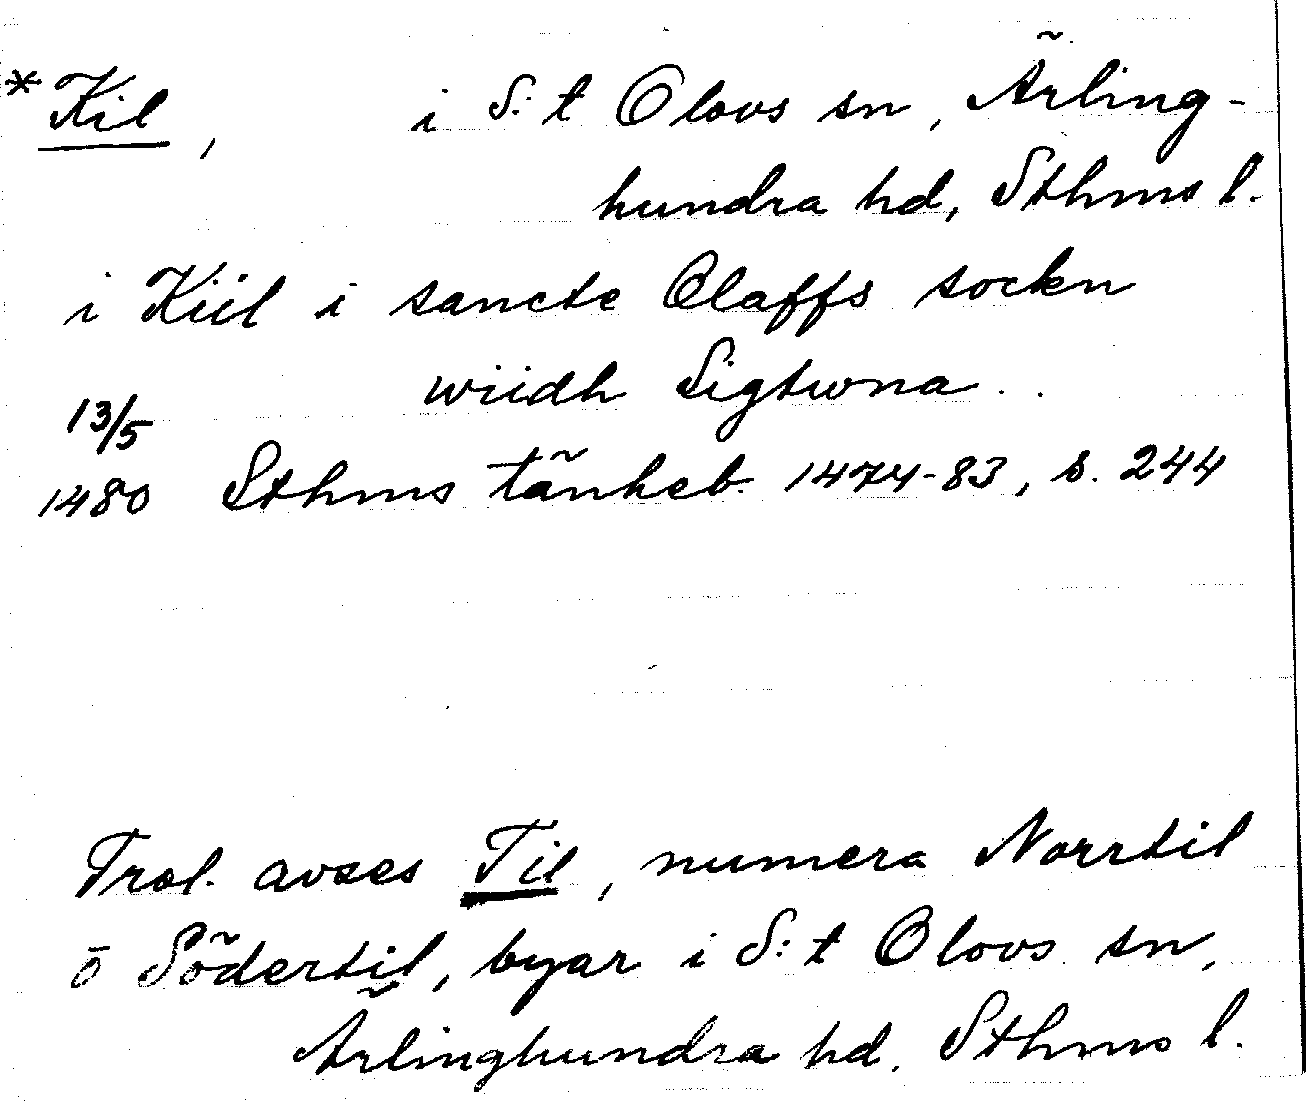 *Kil, i S:t Olovs sn, Ärling-
hundra hd, Sthms l.
i Kiil i sancte Olaffs sockn
wiidh Sigtwna . .
13/5
1480 Sthms tänkeb. 1474-83, s. 244
Trol. avses Til, numera Norrtil
o Södertil, byar i S:t Olovs sn,
Ärlinghundra hd. Sthms l.